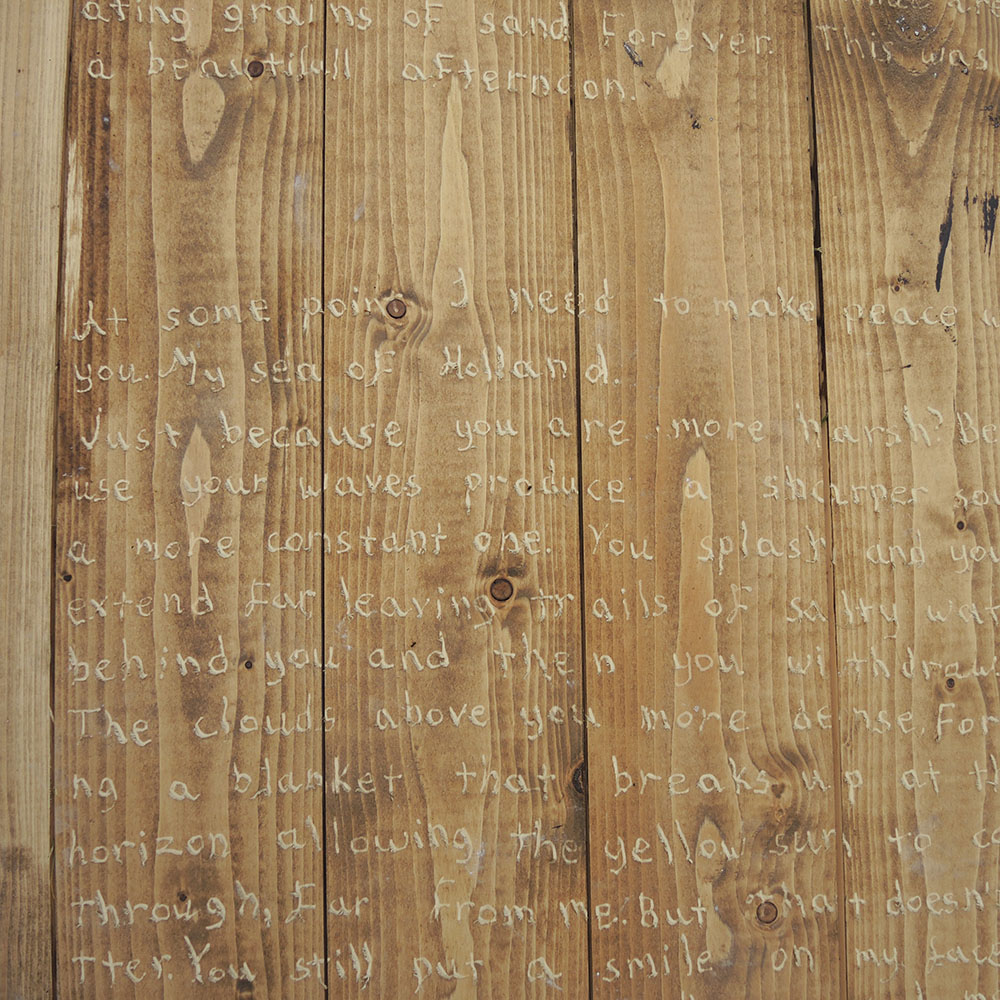 ating grains of sand Forever. This was
a beautifull afternoon.
At some point I need to make peace w
you. My sea of Holland.
Just because you are more harsh? Be
use your waves produce a sharper so
a more constant one. You splash and you
extend far leaving trails of salty wat
behind you and then you withdraw
The clouds above you more dense, For
ng a blanket that breaks up at th
horizon allowing the yellow sun to co
through, Far from me. But that doesn't
tter. You still put a smile on my face